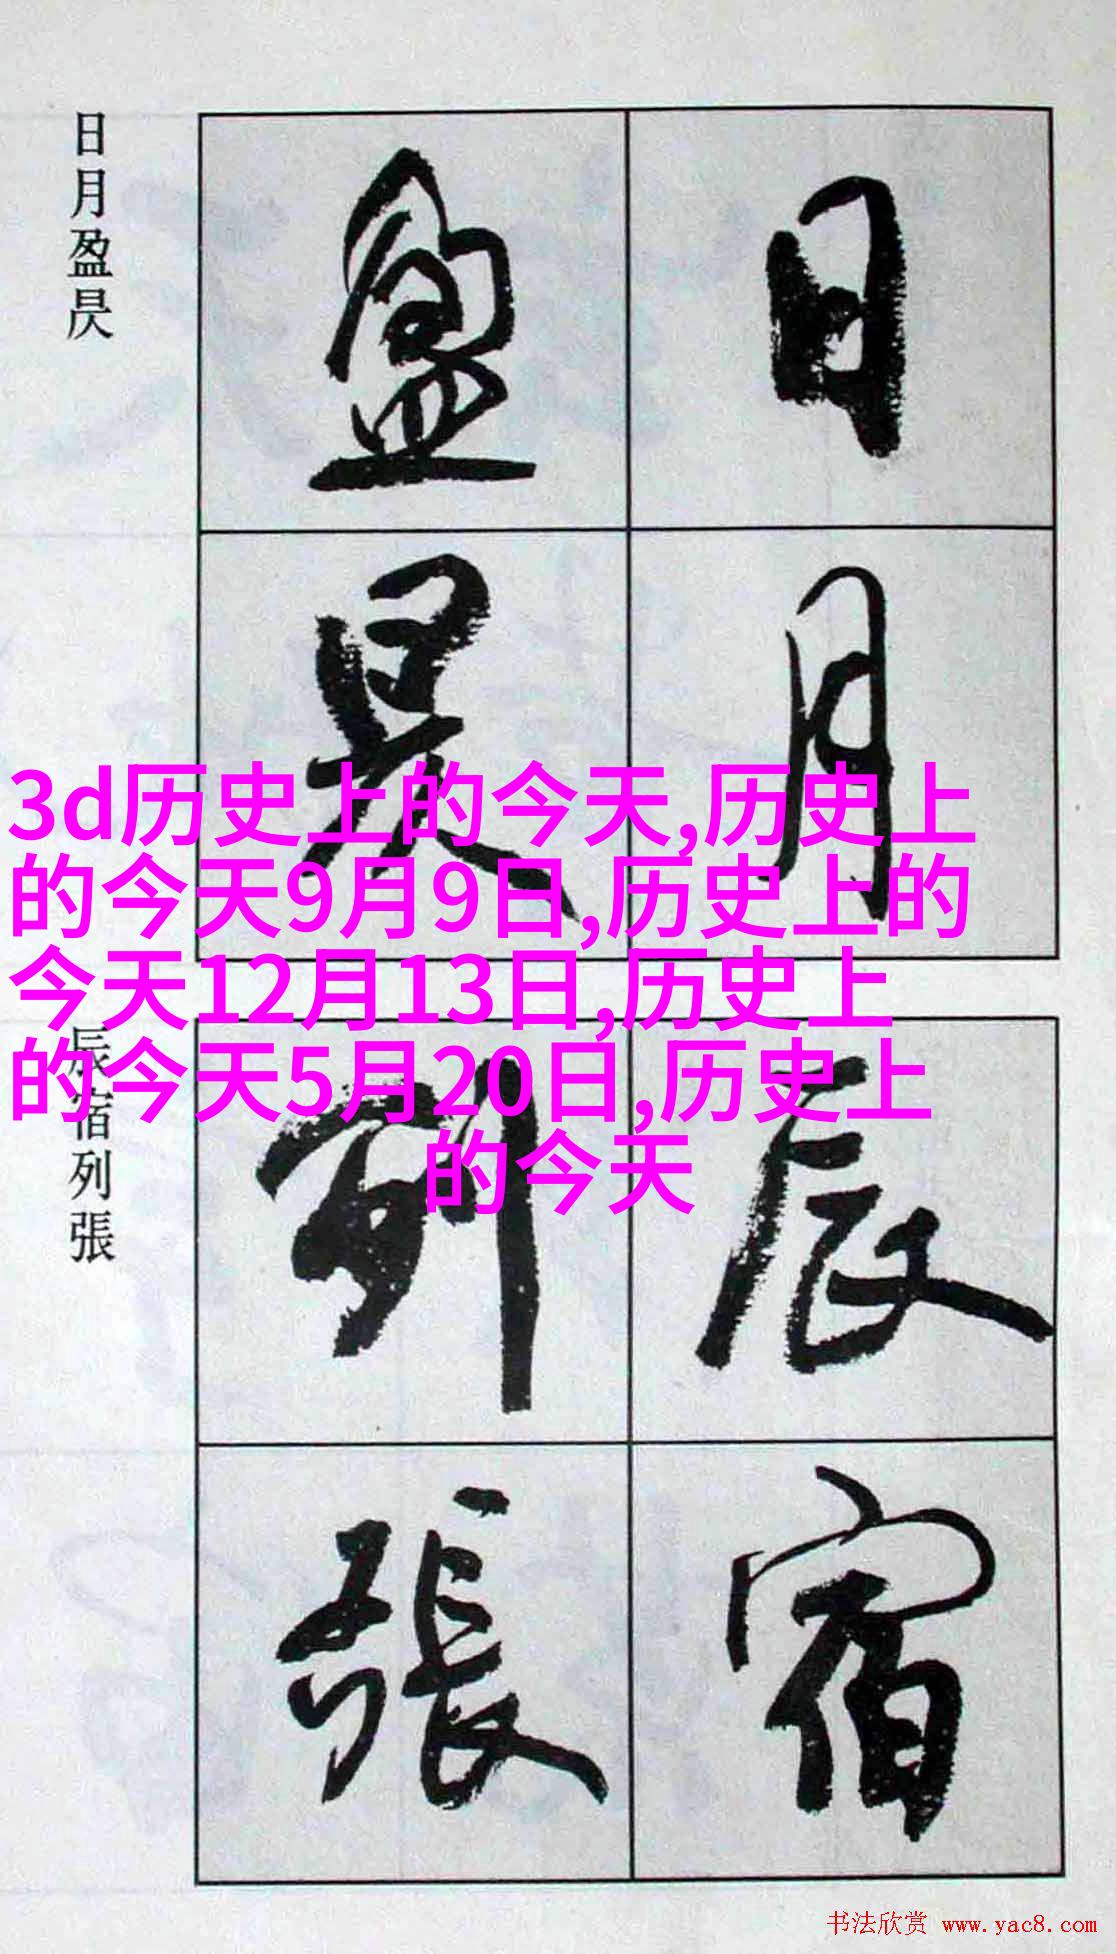 日月盈昃
日月
盈昃
3d历史上的今天,历史上
的今天9月9日,历史上的
今天12月13日,历史上
的今天5月20日,历史上
的今天
辰宿列張
辰宿
列張
书法欣赏 www.yac8.com